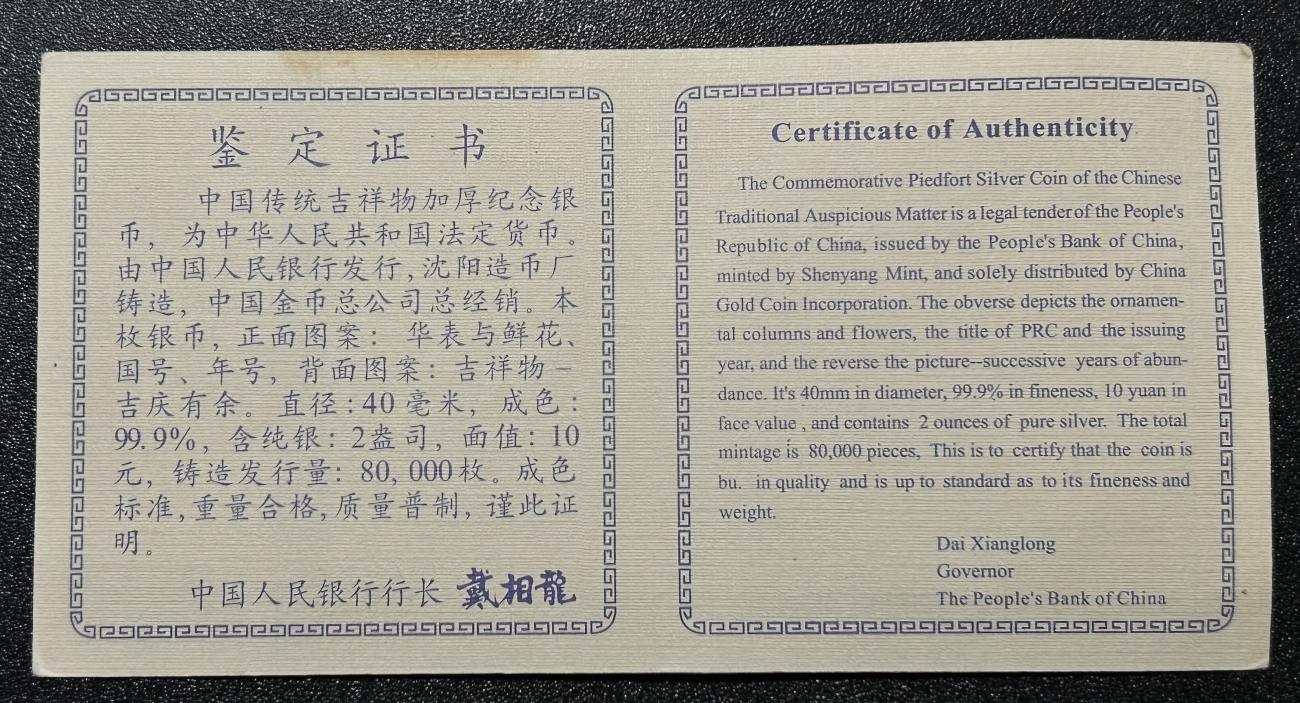 鉴定证书
中国传统吉祥物加厚纪念银
币，为中华人民共和国法定货币。
由中国人民银行发行,沈阳造币厂
铸造，中国金币总公司总经销。本
枚银币，正面图案：华表与鲜花、
国号、年号，背面图案：吉祥物－
吉庆有余。直径：40毫米，成色：
99.9%，含纯银：2盎司，面值：10
元，铸造发行量：80,000枚。成色
标准,重量合格,质量普制，谨此证
明。
中国人民银行行长 戴相龍
Certificate of Authenticity
The Commemorative Piedfort Silver Coin of the Chinese
Traditional Auspicious Matter is a legal tender of the People's
Republic of China, issued by the People's Bank of China,
minted by Shenyang Mint, and solely distributed by China
Gold Coin Incorporation. The obverse depicts the ornamen-
tal columns and flowers, the title of PRC and the issuing
year, and the reverse the picture--successive years of abun-
dance. It's 40mm in diameter, 99.9% in fineness, 10 yuan in
face value , and contains 2 ounces of pure silver. The total
mintage is 80,000 pieces, This is to certify that the coin is
bu. in quality and is up to standard as to its fineness and
weight.
Dai Xianglong
Governor
The People's Bank of China